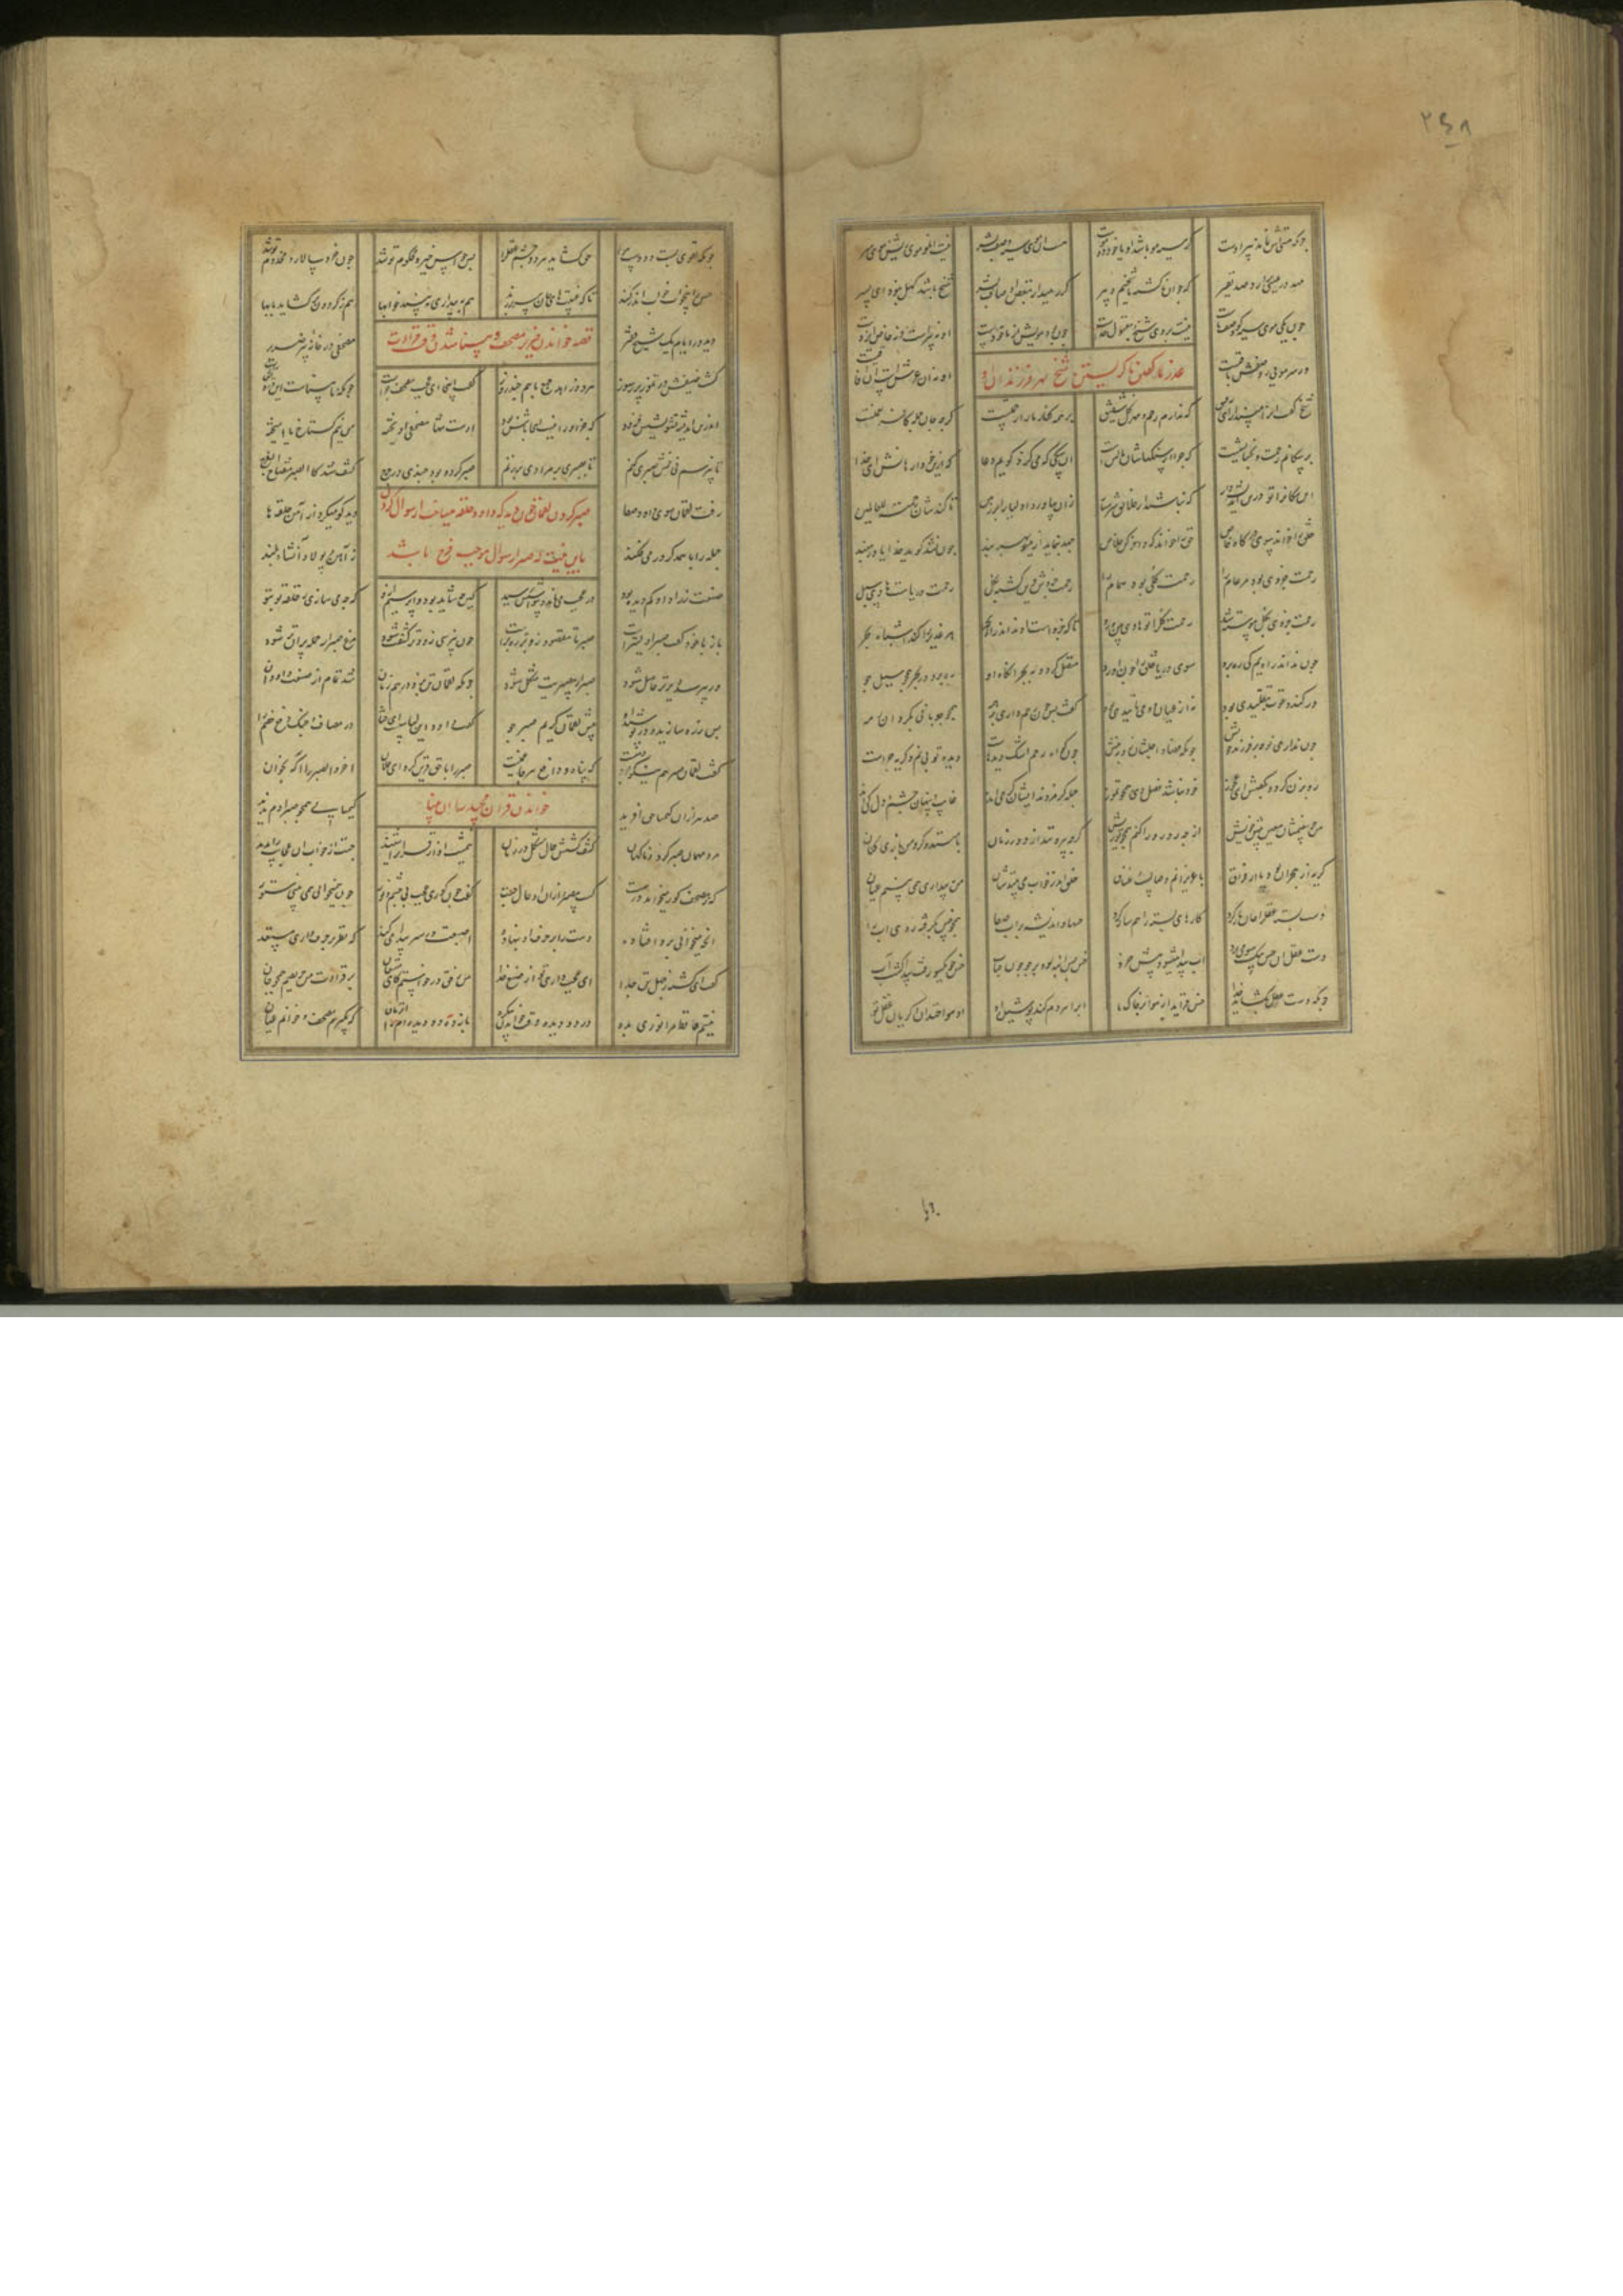 چونکه هستیش نماند پیر اوست
کر سیه مو باشد او یا خود دوموست
هست آن موی سیه وصف بشر
نیست آن مو موی ریش و موی سر
که جوان ناکشته ما شیخیم و پیر
کر رهید از بعض اوصاف بشر
شیخ نبود کهل بود ای پسر
چون یکی موی سیه کو وصف ماست
نیست بر وی شیخ و مقبول خداست
چون بود مویش سپید ار با خودست
او نه پیرست و نه خاص ایزدست
ور سر مویی ز وصفش باقیست
او نه از عرش است
عذر کفتن نا کریستن شیخ بهر فرزندان او
شیخ کفت او را مپندار ای رفیق
که ندارم رحم و مهر و دل شفیق
بر همه کفار ما را رحمتست
کرچه جان جمله کافر نعمتست
بر سکانم رحمت و بخشایشست
که چرا از سنکهاشان مالشست
آن سکی که می کزد کویم دعا
که ازین خو وارهانش ای خدا
که نباشند از خلایق سنکسار
زان بیاورد اولیا را بر زمین
تا کندشان رحمت للعالمین
خلق را خواند سوی درکاه خاص
حق را خواند که وافر کن خلاص
جهد بنماید ازین سو بهر پند
چون نشد کوید خدایا در مبند
رحمت جزوی بود مر عام را
رحمت کلی بود همام را
رحمت جزوش قرین کشته بکل
رحمت جزوی بکل پیوسته شو
رحمت کل را تو هادی بین و رو
تا که جزوست او نداند راه بحر
هر غدیری را کند اشباه بحر
چون نداند راه یم کی ره برد
سوی دریا خلق را چون آورد
متصل کردد به بحر آنکاه او
ره برد در بحر همچو سیل و جو
ور کند دعوت بتقلیدی بود
نه از عیان و وحی تاییدی بود
کفت پس چون رحم داری بر همه
همچو چوپانی بکرد این رمه
چون نداری نوحه بر فرزند خویش
چونکه فصاد اجلشان زد بنیش
چون کواه رحم اشک دیدهاست
دیده تو بی نم و کریه چراست
رو بزن کرد و بکفتش ای عجوز
خود نباشد فصل دی همچو تموز
جمله کر مردند ایشان کر حی اند
غایب و پنهان ز چشم دل کی اند
من چو بینمشان معین پیش خویش
از چه رو رو را کنم همچو تو ریش
کرچه بیرونند از دور زمان
با منند و کرد من بازی کنان
کریه از هجران بود یا از فراق
با عزیزانم وصالست و عناق
خلق اندر خواب می بینندشان
من به بیداری همی بینم عیان
کارهای بسته را هم ساز کرد
حسها و اندیشه بر آب صفا
همچو خس بکرفته روی آب را
دست عقل آن خس بیکسو می برد
آب پیدا میشود پیش خرد
خس بس انبه بود بر جو چون حباب
خس چو یکسو رفت پیدا کشت آب
چونکه دست عقل نکشاید خدا
خس فزاید از هوا بر خاک ما
آب را هر دم کند پوشیده او
آن هوا خندان و کریان عقل تو
چونکه تقوی بست دو دست هوا
حق کشاید هر دو دست عقل را
پس حواس چیره محکوم تو شد
چون خرد سالار و مخدوم تو شد
حس را بیخواب خواب اندر کند
تا که غیبیها ز جان سر بر زند
هم به بیداری ببیند خوابها
هم ز کردون بر کشاید بابها
دید در ایام یک شیخ فقیر
قصه خواندن ضریر مصحف و بینا شدن وقت قراءت
مصحفی در خانه پیر ضریر
هر دو زاهد جمع با هم چند روز
کفت اینجا ای عجب مصحف چراست
چونکه نابیناست این درویش راست
اندرین اندیشه تشویشش فزود
که جز او را نیست اینجا باش و بود
اوست تنها مصحفی آویخته
من نیم کستاخ یا آمیخته
تا بپرسم نی خمش صبری کنم
تا بصبری بر مرادی بر زنم
صبر کرد و بود چندی در حرج
کشف شد کالصبر مفتاح الفرج
رفت لقمان سوی داود صفا
صبر کردن لقمان چون دید که داود حلقه میساخت از سوال کردن
با این نیت که صبر از سوال موجب فرج باشد
دید کو میکرد از آهن حلقه ها
جمله را با همدکر در می فکند
ز آهن پولاد آن شاه بلند
صنعت زراد او کم دیده بود
در عجب می ماند وسواسش فزود
کین چه شاید بود وا پرسم ازو
که چه می سازی ز حلقه تو بتو
باز با خود کفت صبر اولیترست
صبر تا مقصود زوتر رهبرست
چون نپرسی زودتر کشفت شود
مرغ صبر از جمله پران تر شود
ور بپرسی دیرتر حاصل شود
سهل از بی صبریت مشکل شود
چونکه لقمان تن بزد هم در زمان
شد تمام از صنعت داود آن
پس زره سازید و در پوشید او
پیش لقمان کریم صبر خو
در مصاف و جنک دفع زخم را
کفت لقمان صبر هم نیکو دمیست
که پناه و دافع هر جا غمیست
صبر را با حق قرین کرد ای فلان
آخر والعصر را آکه بخوان
صد هزاران کیمیا حق آفرید
خواندن قران مجید بسان بینا
کیمیایی همچو صبر آدم ندید
مرد مهمان صبر کرد و ناکهان
کشف کشتش حال مشکل در زمان
جست از خواب آن عجایب را بدید
که ز مصحف کور میخواند درست
کشت بیصبر و ازو آن حال جست
چون همی خوانی همی بینی سطور
آنچه میخوانی بر آن افتاده
دست را بر حرف آن بنهاده
اصبعت در سیر پیدا می کند
که نظر بر حرف داری مستند
کفت ای کشته ز جهل تن جدا
این عجب داری تو از صنع خدا
من ز حق درخواستم کای مستعان
بر قراءت من حریصم همچو جان
نیستم حافظ مرا نوری بده
در دو دیده وقت خواندن بی کره
باز ده دو دیده ام را آن زمان
که بکیرم مصحف و خوانم عیان